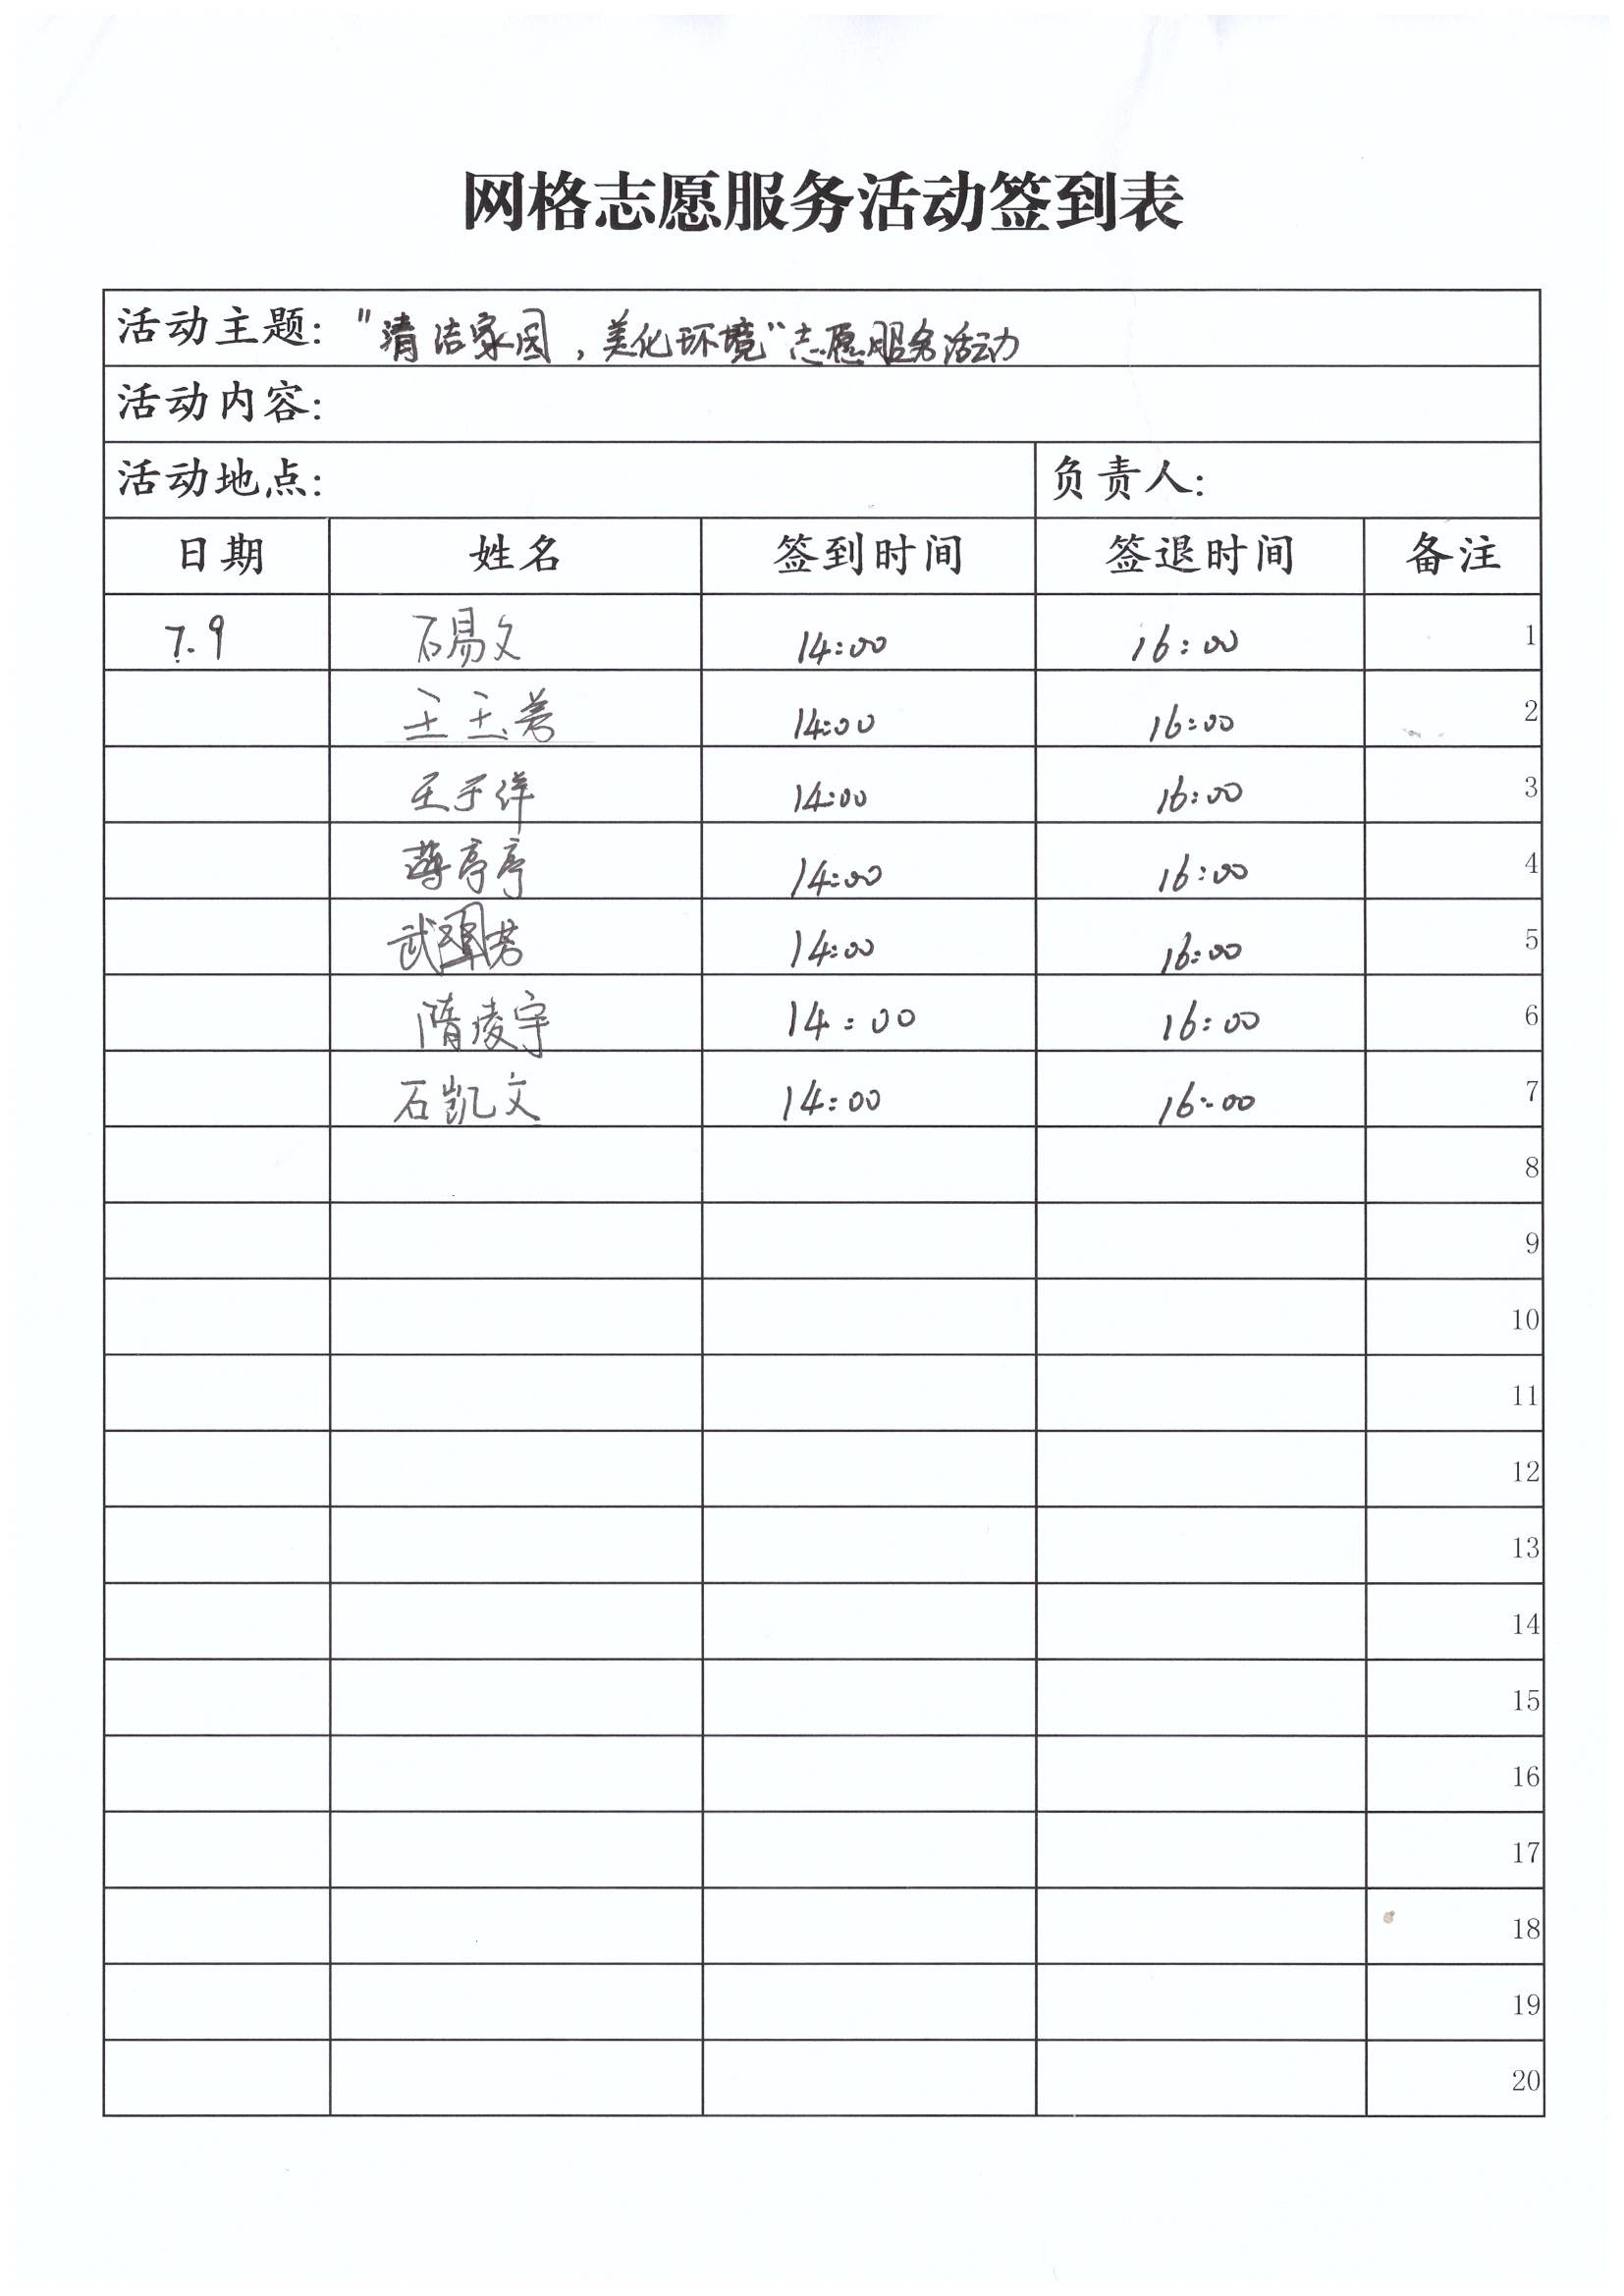 网格志愿服务活动签到表
活动主题: "清洁家园,美化环境"志愿服务活动
活动内容:
活动地点: 负责人:
日期 姓名 签到时间 签退时间 备注
7.9 石易文 14:00 16:00 1
王玉美 14:00 16:00 2
王于洋 14:00 16:00 3
薄亭亭 14:00 16:00 4
武翠芳 14:00 16:00 5
隋凌宇 14:00 16:00 6
石凯文 14:00 16:00 7
8
9
10
11
12
13
14
15
16
17
18
19
20